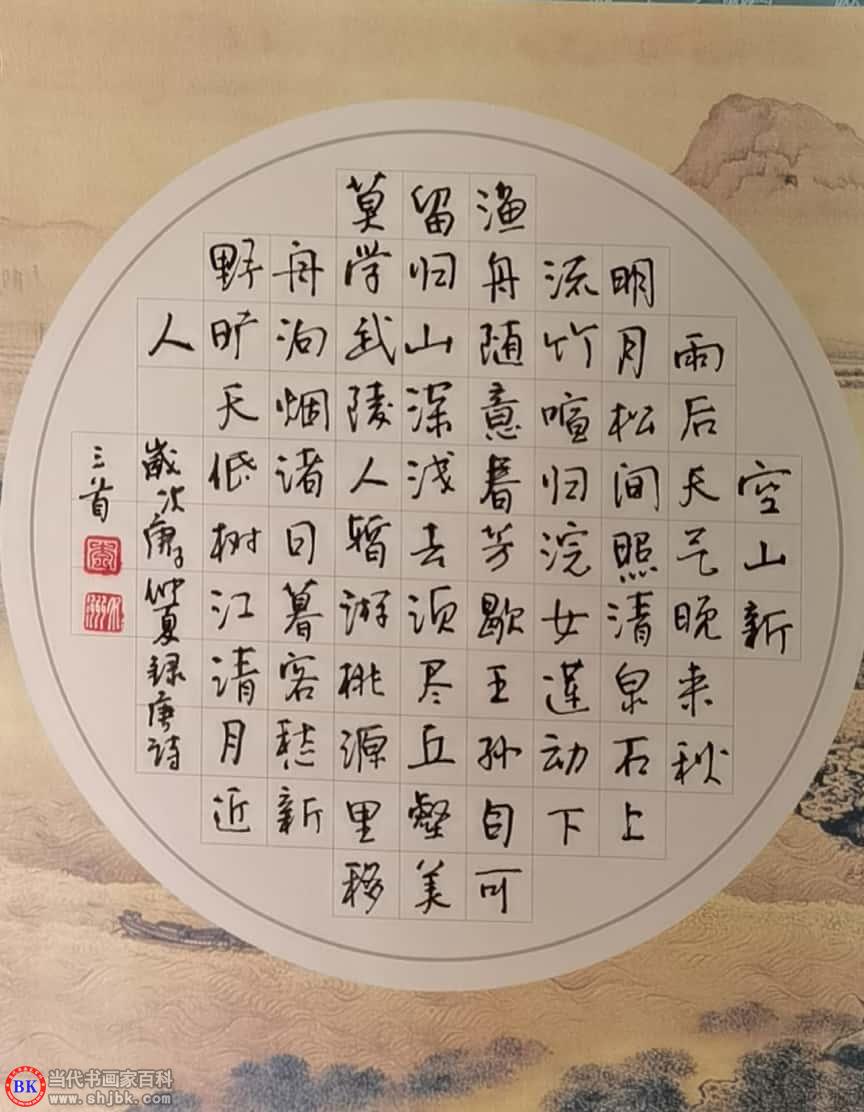 空山新
雨后天气晚来秋
明月松间照清泉石上
流竹喧归浣女莲动下
渔舟随意春芳歇王孙自可
留归山深浅去须尽丘壑美
莫学武陵人暂游桃源里移
舟泊烟渚日暮客愁新
野旷天低树江清月近
人 歲次庚子仲夏録唐诗
三首
BK 当代书画家百科
www.shjbk.com